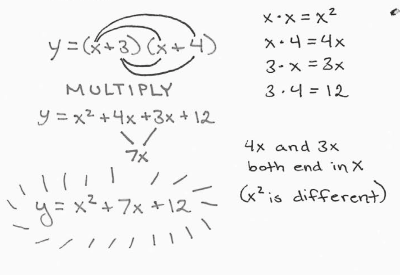 y = (x + 3) (x + 4)
MULTIPLY
y = x² + 4x + 3x + 12
7x
y = x² + 7x + 12
x · x = x²
x · 4 = 4x
3 · x = 3x
3 · 4 = 12
4x and 3x
both end in x
(x² is different)